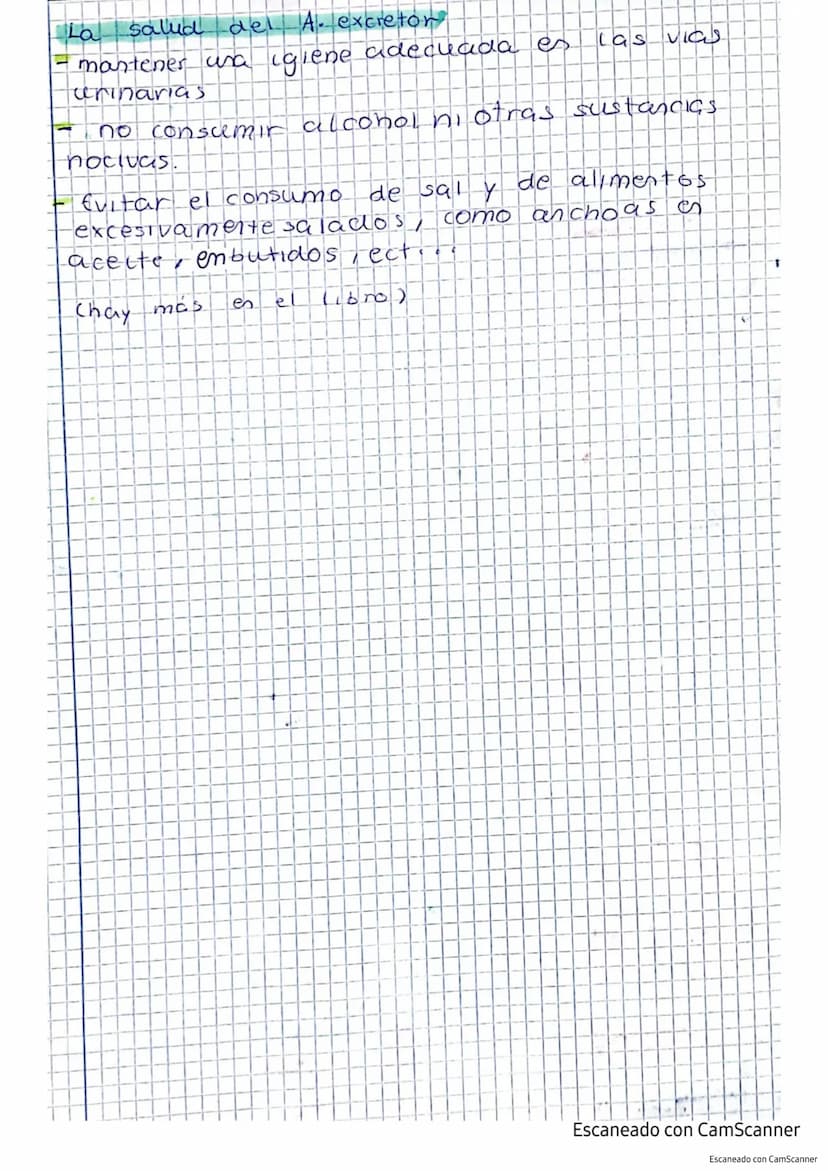 La salud del A. excretor
- mantener una igiene adecuada en las vias
urinarias
- no consumir alcohol ni otras sustancias
nocivas.
- Evitar el consumo de sal y de alimentos
excesivamente salados, como anchoas en
aceite, embutidos, ect...
(hay más en el libro)
Escaneado con CamScanner
Escaneado con CamScanner